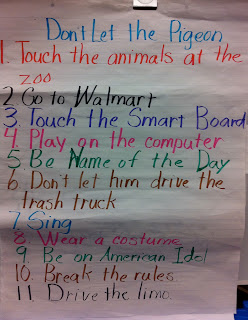 Don't Let the Pigeon
1. Touch the animals at the
zoo
2. Go to Walmart
3. Touch the Smart Board
4. Play on the computer
5. Be Name of the Day
6. Don't let him drive the
trash truck
7. Sing
8. Wear a costume
9. Be on American Idol
10. Break the rules.
11. Drive the limo.